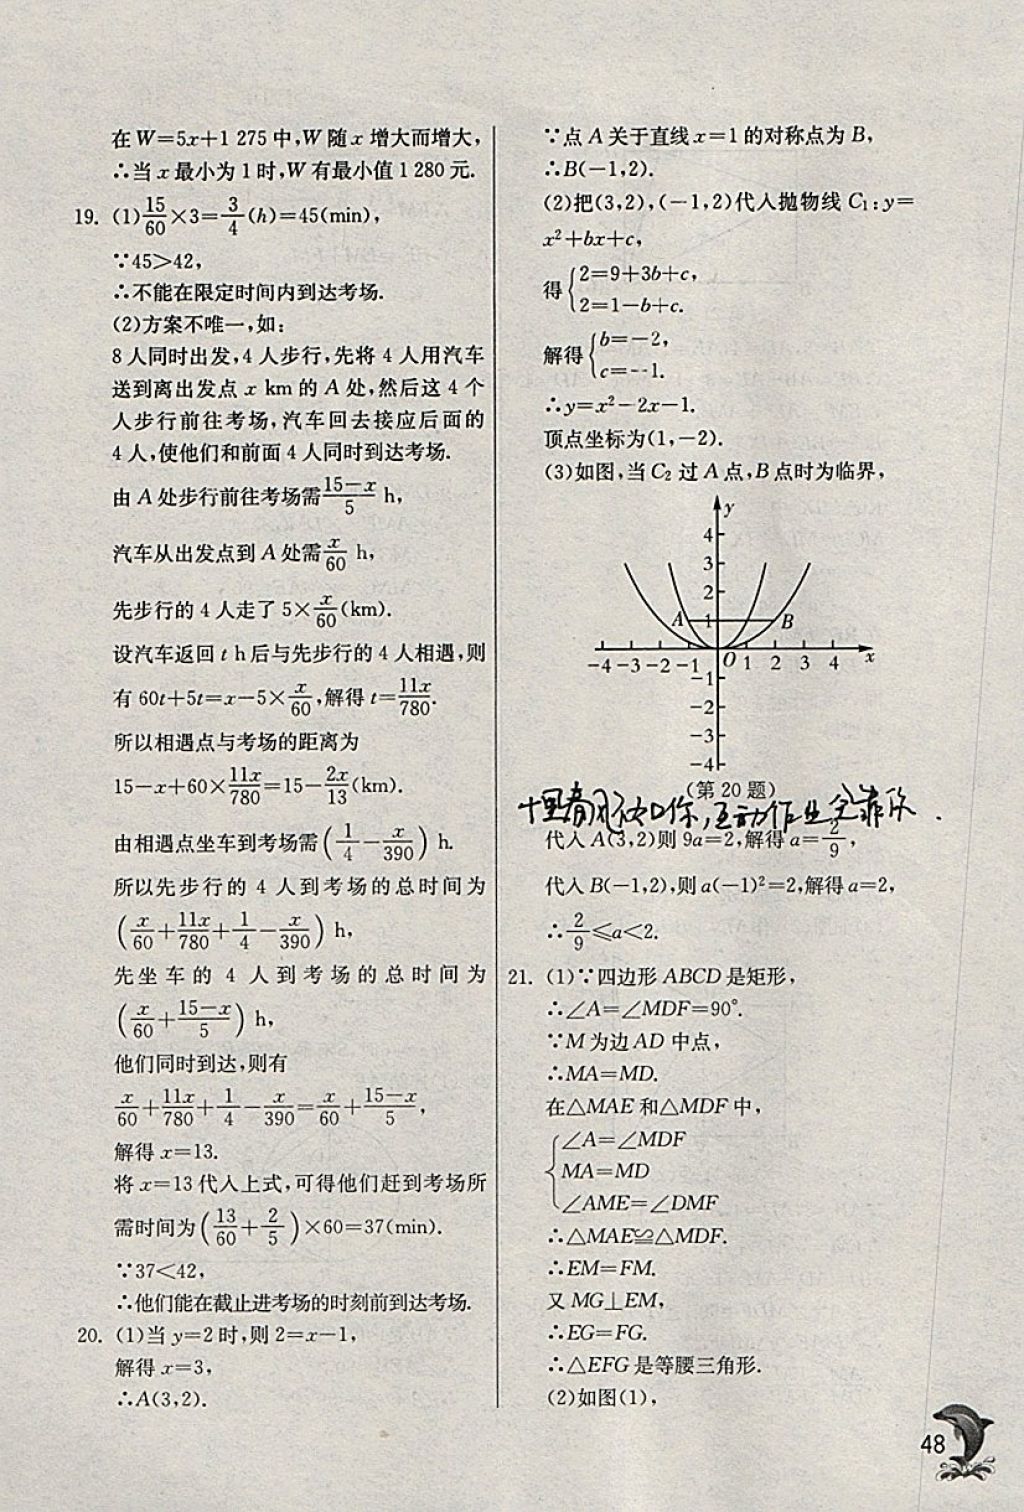 在W=5x+1 275中,W随x增大而增大,
∴当x最小为1时,W有最小值1 280元.
19. (1)15/60×3=3/4(h)=45(min),
∵45>42,
∴不能在限定时间内到达考场.
(2)方案不唯一,如:
8人同时出发,4人步行,先将4人用汽车
送到离出发点x km的A处,然后这4个
人步行前往考场,汽车回去接应后面的
4人,使他们和前面4人同时到达考场.
由A处步行前往考场需(15-x)/5 h,
汽车从出发点到A处需x/60 h,
先步行的4人走了5×x/60(km).
设汽车返回t h后与先步行的4人相遇,则
有60t+5t=x-5×x/60,解得t=11x/780.
所以相遇点与考场的距离为
15-x+60×11x/780=15-2x/13(km).
由相遇点坐车到考场需(1/4-x/390) h.
所以先步行的4人到考场的总时间为
(x/60+11x/780+1/4-x/390) h,
先坐车的4人到考场的总时间为
(x/60+(15-x)/5) h,
他们同时到达,则有
x/60+11x/780+1/4-x/390=x/60+(15-x)/5,
解得x=13.
将x=13代入上式,可得他们赶到考场所
需时间为(13/60+2/5)×60=37(min).
∵37<42,
∴他们能在截止进考场的时刻前到达考场.
20. (1)当y=2时,则2=x-1,
解得x=3,
∴A(3,2).
∵点A关于直线x=1的对称点为B,
∴B(-1,2).
(2)把(3,2),(-1,2)代入抛物线C₁:y=
x²+bx+c,
得{2=9+3b+c,
2=1-b+c.
解得{b=-2,
c=-1.
∴y=x²-2x-1.
顶点坐标为(1,-2).
(3)如图,当C₂过A点,B点时为临界,
y
4
3
2
A 1 B
-4 -3 -2 -1 O 1 2 3 4 x
-1
-2
-3
-4
(第20题)
十里春风不如你,互动作业全靠你.
代入A(3,2)则9a=2,解得a=2/9,
代入B(-1,2),则a(-1)²=2,解得a=2,
∴2/9≤a<2.
21. (1)∵四边形ABCD是矩形,
∴∠A=∠MDF=90°.
∵M为边AD中点,
∴MA=MD.
在△MAE和△MDF中,
{∠A=∠MDF
MA=MD
∠AME=∠DMF
∴△MAE≌△MDF.
∴EM=FM.
又MG⊥EM,
∴EG=FG.
∴△EFG是等腰三角形.
(2)如图(1),
48